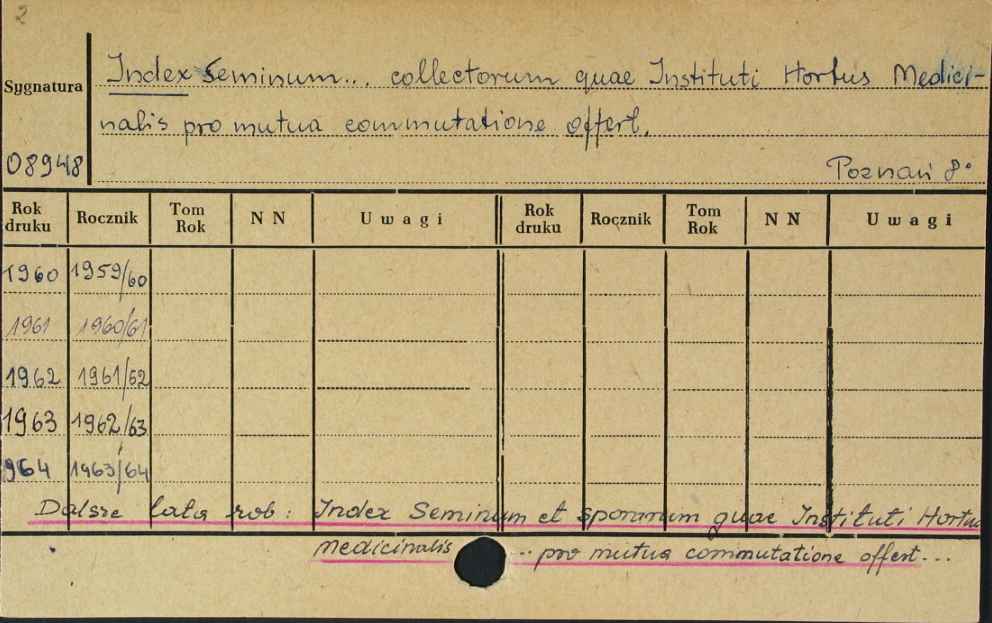 2
Sygnatura
Index Seminum... collectorum quae Instituti Hortus Medici-
nalis pro mutua commutatione offert.
08948
Poznań 8°
Rok druku Rocznik Tom Rok NN Uwagi Rok druku Rocznik Tom Rok NN Uwagi
1960 1959/60
1961 1960/61
1962 1961/62
1963 1962/63
964 1963/64
Dalsze lata rob: Index Seminum et sporarum quae Instituti Hortus
medicinalis ... pro mutua commutatione offert...